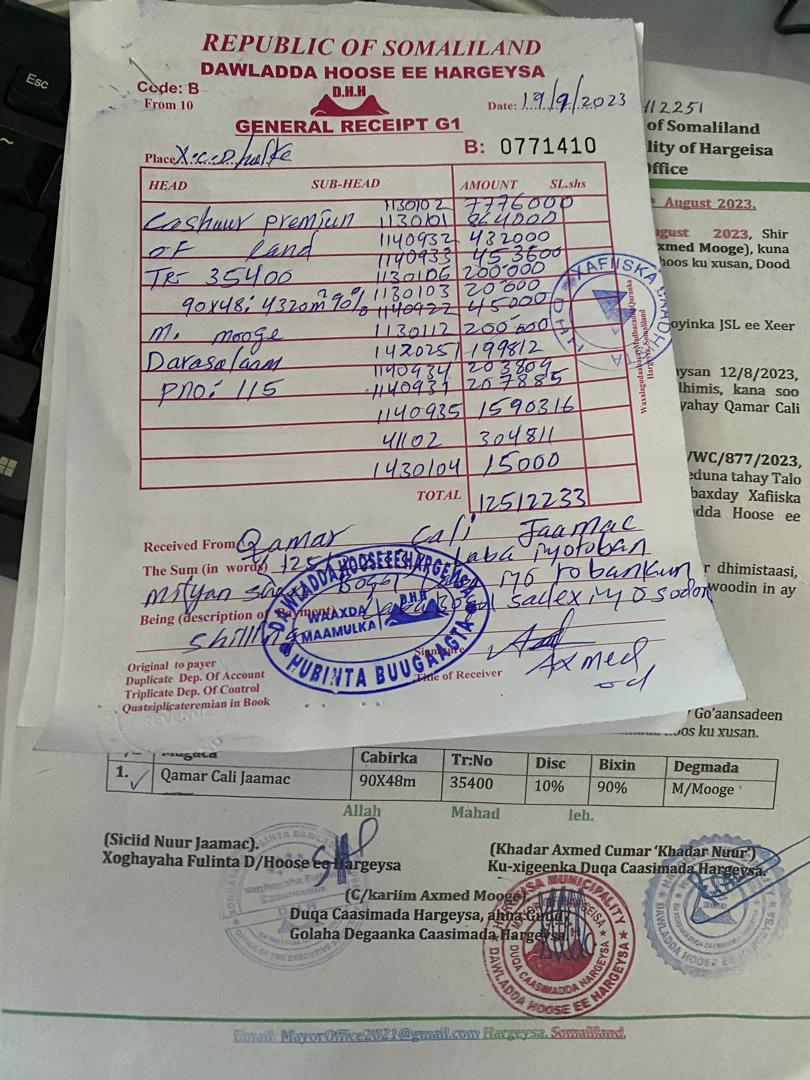 Esc
REPUBLIC OF SOMALILAND
DAWLADDA HOOSE EE HARGEYSA
Code: B
From 10
D.H.H
Date: 19/9/2023
GENERAL RECEIPT G1
Place X.C.Dhulke
B: 0771410
HEAD SUB-HEAD AMOUNT SL.shs
1130102 7776000
Cashuur premiun 1130101 864000
of land 1140932 432000
1140933 453600
TR 35400 1130106 200'000
1130103 20'000
90x48: 4320m² 90% 1140922 45000
M. Mooge 1130112 200'000
Darasalaam 1420251 199812
1140434 203809
PNO: 115 1140931 207885
1140935 1590316
41102 304811
1430104 15000
TOTAL 12512233
Waxalagudaabacay Madbacadda Qaranka
Hargeysa, Somaliland
XAFIISKA
Received From Qamar Cali Jaamac
The Sum (in words) laba iyo toban
milyan iyo toban kun
Being (description of Payment) saddex iyo sodon
shilling
DAWLADDA HOOSE EE HARGEYSA
WAAXDA MAAMULKA
D.H.H
HUBINTA BUUGAAGTA
Signature
Title of Receiver
Axmed
Original to payer
Duplicate Dep. Of Account
Triplicate Dep. Of Control
Quatsiplicateremian in Book
112251
of Somaliland
lity of Hargeisa
Office
August 2023.
gust 2023, Shir
xmed Mooge), kuna
hoos ku xusan, Dood
oyinka JSL ee Xeer
aysan 12/8/2023,
lhimis, kana soo
yahay Qamar Cali
/WC/877/2023,
eduna tahay Talo
baxday Xafiiska
dda Hoose ee
r dhimistaasi,
woodin in ay
Go'aansadeen
oos ku xusan.
Mugaca Cabirka Tr:No Disc Bixin Degmada
1. Qamar Cali Jaamac 90X48m 35400 10% 90% M/Mooge
Allah Mahad leh.
(Siciid Nuur Jaamac).
Xoghayaha Fulinta D/Hoose ee Hargeysa
(Khadar Axmed Cumar 'Khadar Nuur')
Ku-xigeenka Duqa Caasimada Hargeysa.
(C/kariim Axmed Mooge)
Duqa Caasimada Hargeysa, ahna Guda.
Golaha Degaanka Caasimada Hargeysa
HARGEYSA MUNICIPALITY
DUQA CAASIMADDA HARGEYSA
DAWLADDA HOOSE EE HARGEYSA
Email: MayorOffice2021@gmail.com Hargeysa, Somaliland.